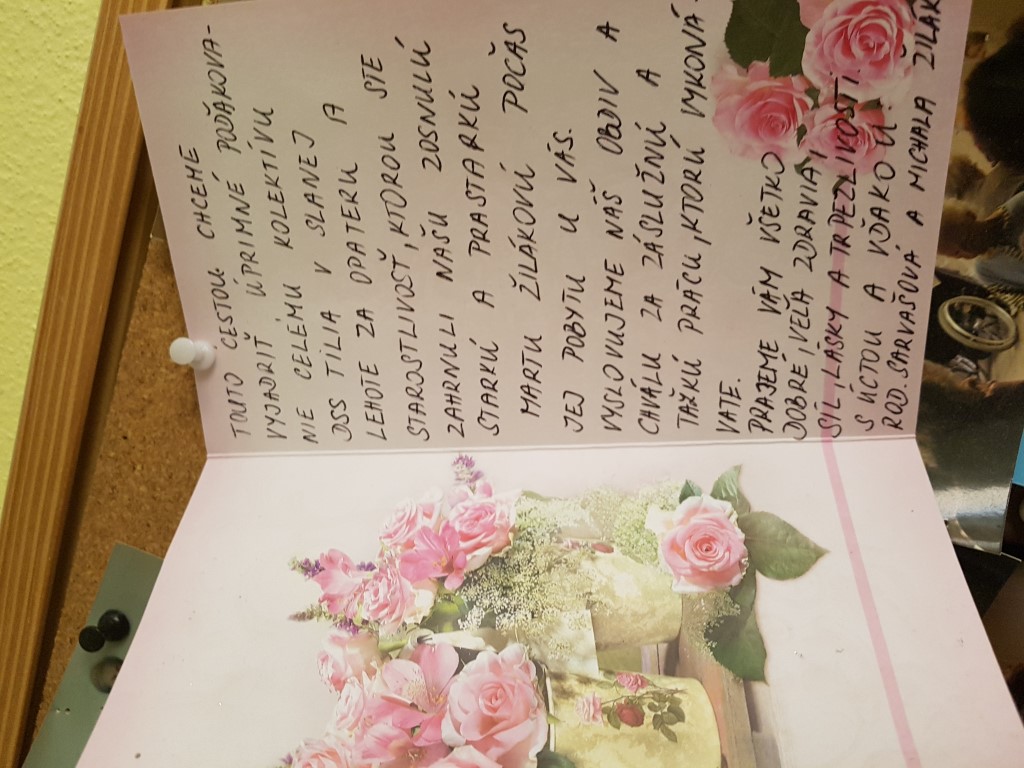 TOUTO CESTOU CHCEME
VYJADRIŤ ÚPRIMNÉ POĎAKOVA-
NIE CELÉMU KOLEKTÍVU
DSS TÍLIA V SLANEJ
LEHOTE ZA OPATERU A
STAROSTLIVOSŤ, KTOROU STE
ZAHRNULI NAŠU ZOSNULÚ
STARKÚ A PRASTARKÚ
MARTU ŽILÁKOVÚ POČAS
JEJ POBYTU U VÁS.
VYSLOVUJEME NÁŠ OBDIV A
CHVÁLU ZA ZÁSLUŽNÚ A
ŤAŽKÚ PRÁCU, KTORÚ VYKONÁ-
VATE.
PRAJEME VÁM VŠETKO
DOBRÉ, VEĽA ZDRAVIA,
SÍL, LÁSKY A TRPEZLIVOSTI.
S ÚCTOU A VĎAKOU
ROD. SARVAŠOVÁ A MICHALA ŽILÁK